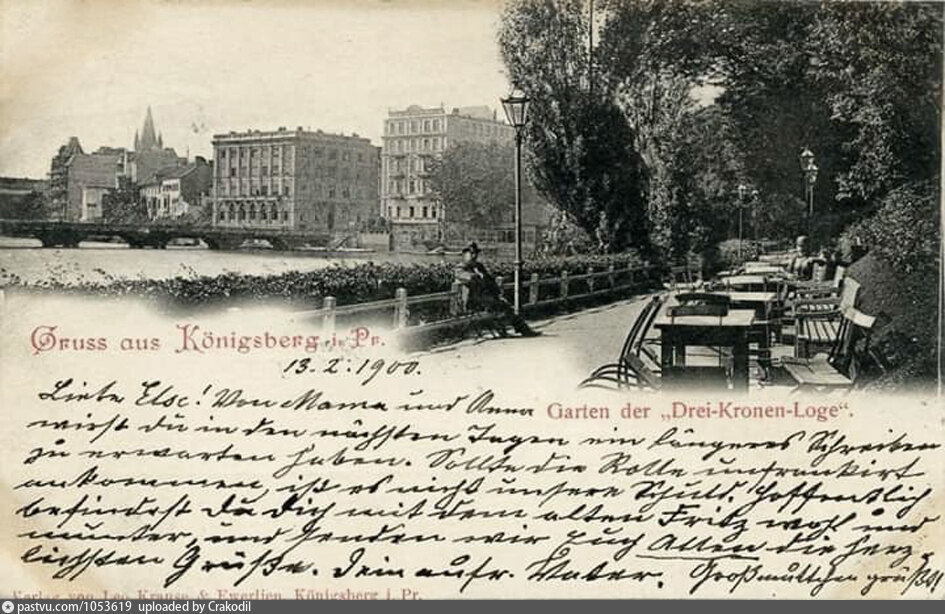 Gruss aus Königsberg i. Pr.
13.2.1900.
Garten der „Drei-Kronen-Loge“.
Liebe Else! Von Mama und Anna
wirst du in den nächsten Tagen ein längeres Schreiben
zu erwarten haben. Sollte die Rolle unfrankirt
ankommen ist es nicht unsere Schuld. Hoffentlich
befindest du dich mit dem alten Fritz wohl und
munter, und senden wir Euch Allen die herz
lichsten Grüße. Dein aufr. Vater. Großmuttchen grüßt
Verlag von Leo Krause & Ewerlien, Königsberg i. Pr.
pastvu.com/1053619 uploaded by Crakodil